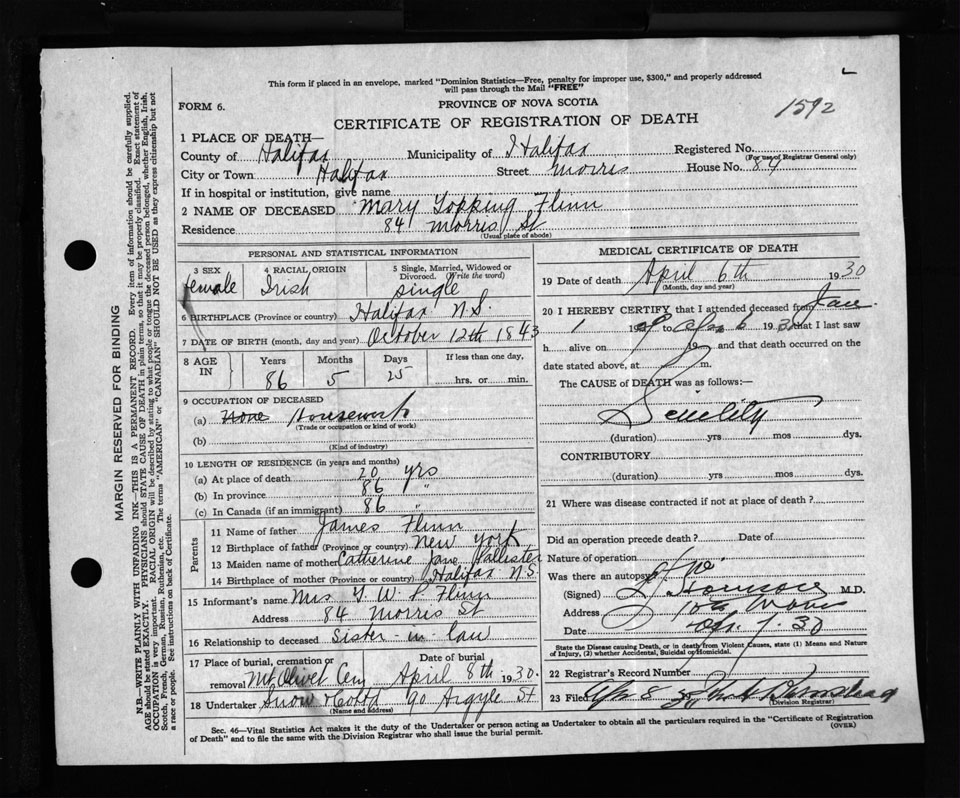 This form if placed in an envelope, marked "Dominion Statistics—Free, penalty for improper use, $300," and properly addressed
will pass through the Mail "FREE"
FORM 6.
PROVINCE OF NOVA SCOTIA
1592
CERTIFICATE OF REGISTRATION OF DEATH
1 PLACE OF DEATH—
County of Halifax Municipality of Halifax Registered No.
(For use of Registrar General only)
City or Town Halifax Street Morris House No. 84
If in hospital or institution, give name
2 NAME OF DECEASED Mary Topping Flinn
Residence 84 Morris St
(Usual place of abode)
PERSONAL AND STATISTICAL INFORMATION
3 SEX female
4 RACIAL ORIGIN Irish
5 Single, Married, Widowed or Divorced. (Write the word) single
6 BIRTHPLACE (Province or country) Halifax N.S.
7 DATE OF BIRTH (month, day and year) October 12th 1843
8 AGE IN Years 86 Months 5 Days 25 If less than one day, hrs. or min.
9 OCCUPATION OF DECEASED
(a) None Housework
(Trade or occupation or kind of work)
(b)
(Kind of industry)
10 LENGTH OF RESIDENCE (in years and months)
(a) At place of death 20 yrs
(b) In province 86 "
(c) In Canada (if an immigrant) 86 "
Parents
11 Name of father James Flinn
12 Birthplace of father (Province or country) New York
13 Maiden name of mother Catherine Jane Pallister
14 Birthplace of mother (Province or country) Halifax N.S.
15 Informant's name Mrs T. W. P. Flinn
Address 84 Morris St
16 Relationship to deceased sister-in law
17 Place of burial, cremation or removal Mt Olivet Cem Date of burial April 8th 1930.
18 Undertaker Snow & Co Ltd 90 Argyle St
(Name and address)
MEDICAL CERTIFICATE OF DEATH
19 Date of death April 6th 1930
(Month, day and year)
20 I HEREBY CERTIFY that I attended deceased from Jan
1 19 to Apr 6 193 that I last saw
h alive on 19 and that death occurred on the
date stated above, at m.
The CAUSE of DEATH was as follows:—
Senility
(duration) yrs mos dys.
CONTRIBUTORY
(duration) yrs mos dys.
21 Where was disease contracted if not at place of death?
Did an operation precede death? Date of
Nature of operation
Was there an autopsy No
(Signed) M.D.
Address Morris
Date Ap. 7. 30
State the Disease causing Death, or in death from Violent Causes, state (1) Means and Nature of Injury, (2) whether Accidental, Suicidal or Homicidal.
22 Registrar's Record Number
23 Filed Apr 8 30
(Division Registrar)
Sec. 46—Vital Statistics Act makes it the duty of the Undertaker or person acting as Undertaker to obtain all the particulars required in the "Certificate of Registration
of Death" and to file the same with the Division Registrar who shall issue the burial permit.
(OVER)
MARGIN RESERVED FOR BINDING
N.B.—WRITE PLAINLY WITH UNFADING INK—THIS IS A PERMANENT RECORD. Every item of information should be carefully supplied.
AGE should be stated EXACTLY. PHYSICIANS should STATE CAUSE OF DEATH in plain terms, so that it may be properly classified. Exact statement of
OCCUPATION is very important. RACIAL ORIGIN will be described by stating to what people or tongue the deceased person belonged, whether English, Irish,
Scotch, French, German, Russian, Ruthenian, etc. The terms "AMERICAN" or "CANADIAN" SHOULD NOT BE USED as they express citizenship but not
a race or people. See instructions on back of Certificate.